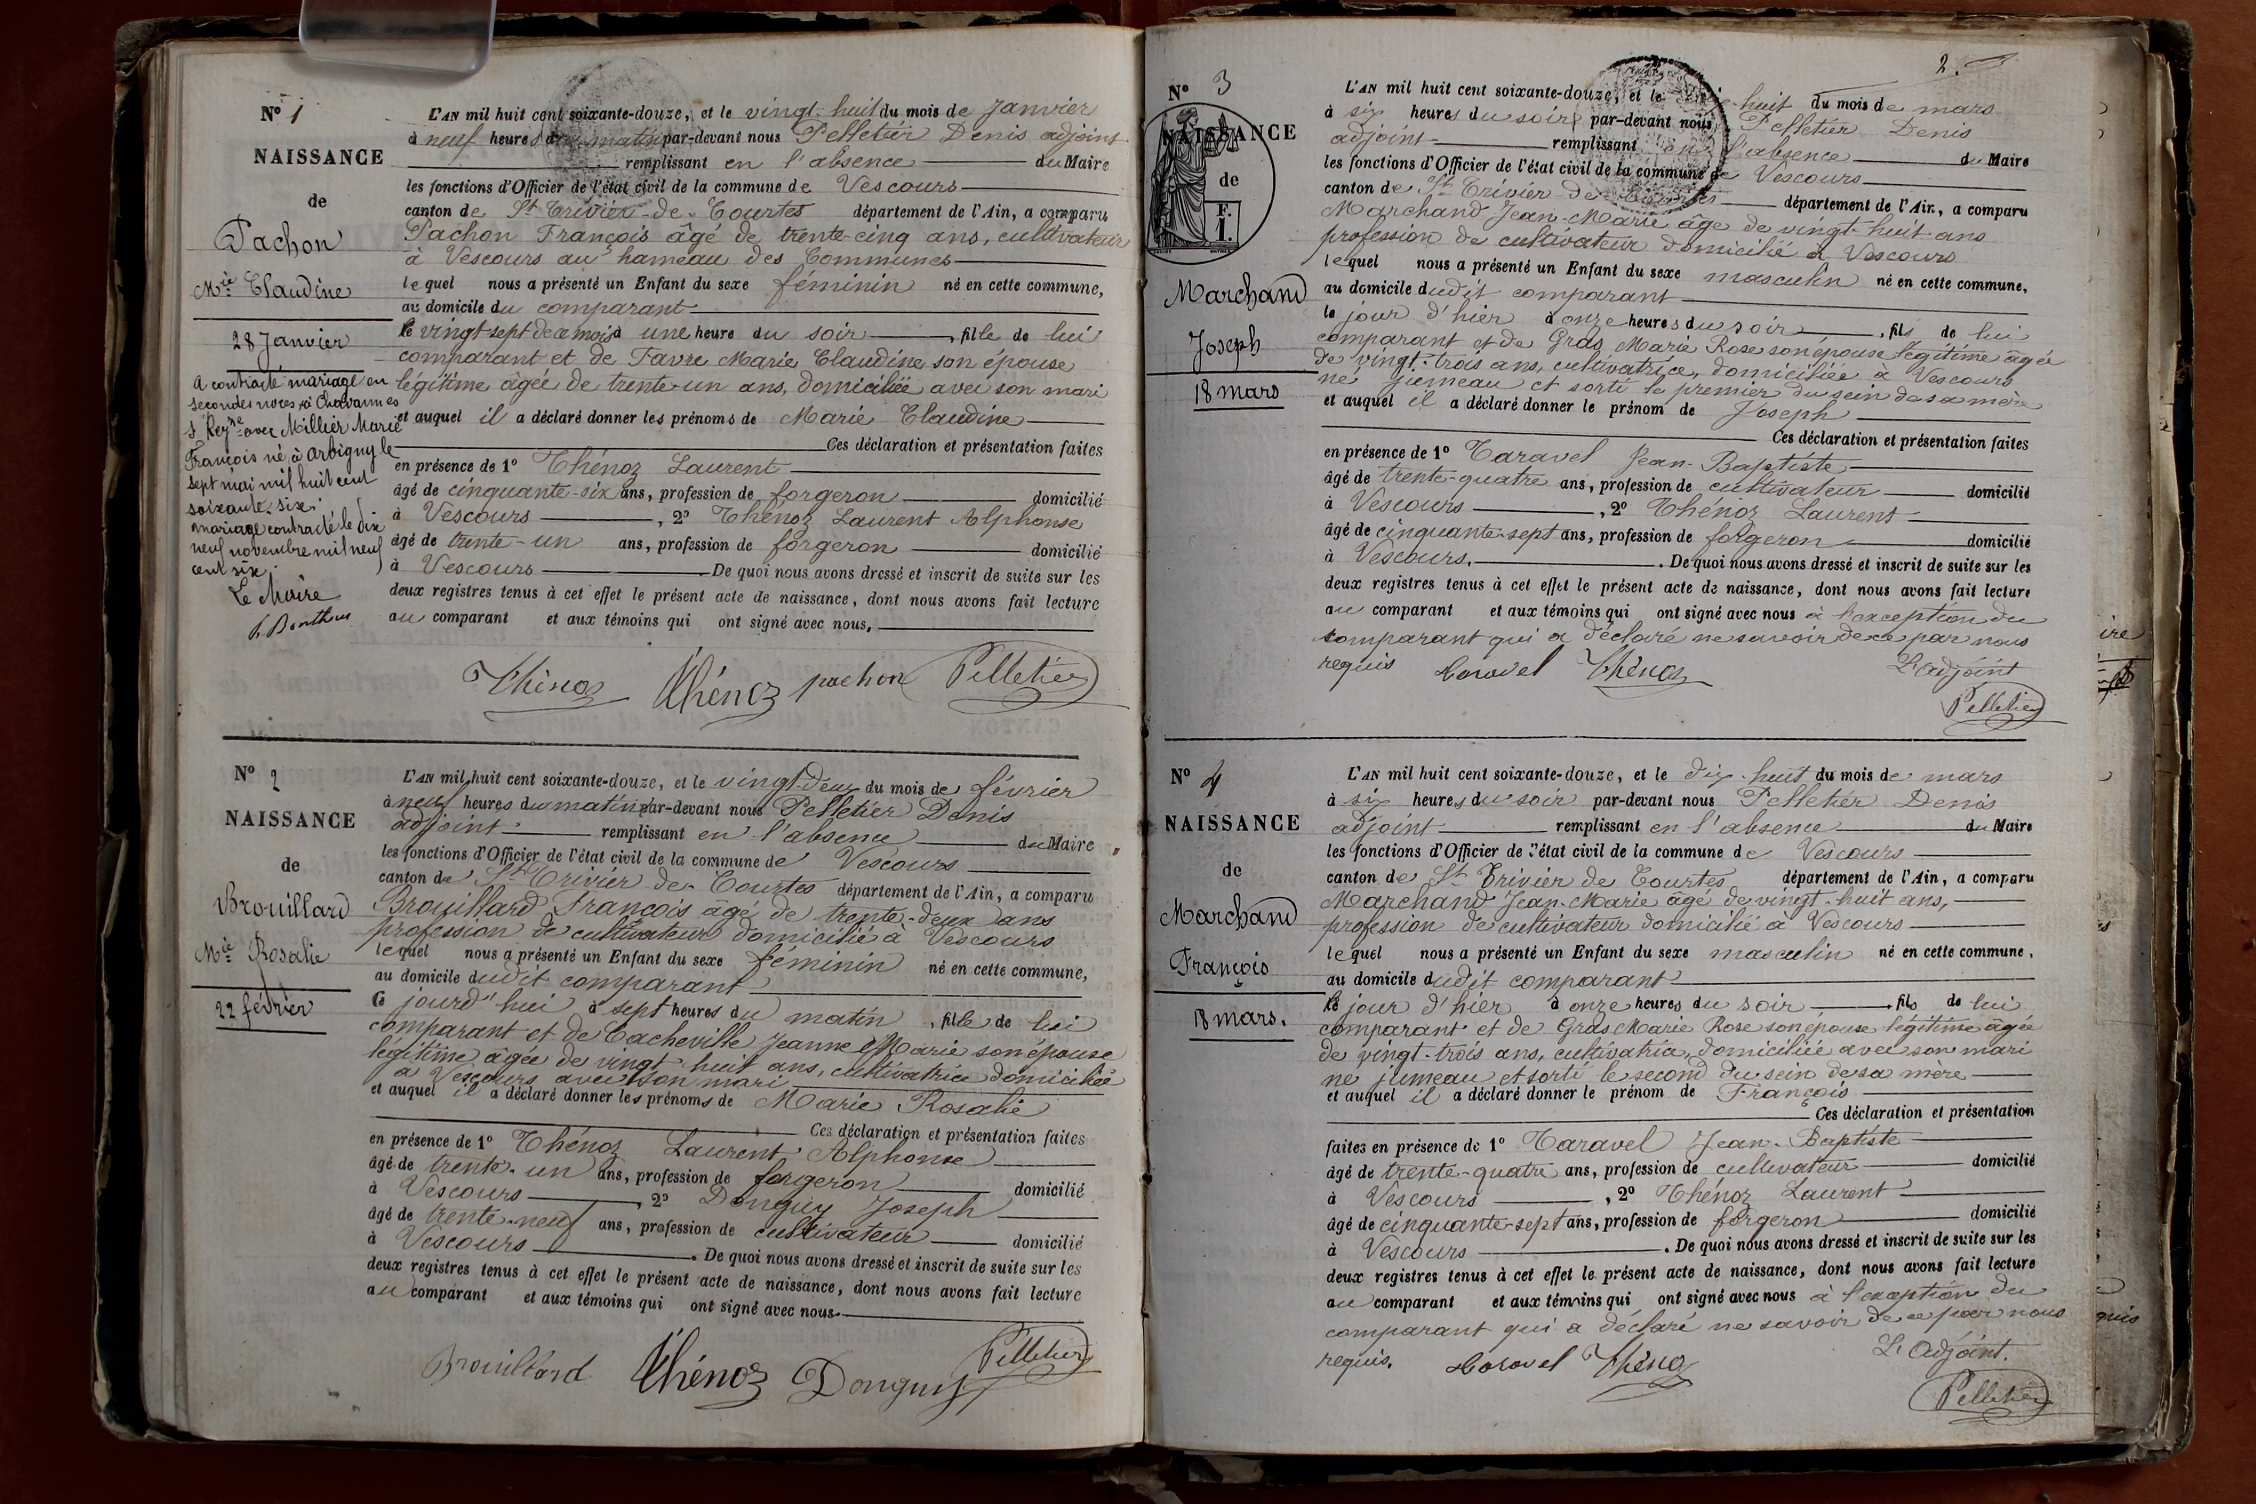 N° 1
NAISSANCE
de
Pachon
Mie Claudine
28 Janvier
a contracté mariage en
secondes noces à Chavannes
s/ Reyssze avec Millier Marie
François né à Arbigny le
sept mai mil huit cent
soixante-six.
mariage contracté le dix
neuf novembre mil neuf
cent six.
Le Maire
L'AN mil huit cent soixante-douze, et le vingt-huit du mois de Janvier
à neuf heures du matin par-devant nous Pelletier Denis adjoint
remplissant en l'absence du Maire
les fonctions d'Officier de l'état civil de la commune de Vescours
canton de St Trivier-de-Courtes département de l'Ain, a comparu
Pachon François âgé de trente-cinq ans, cultivateur
à Vescours au hameau des Communes
lequel nous a présenté un Enfant du sexe féminin né en cette commune,
au domicile du comparant
le vingt sept de ce mois à une heure du soir, fille de lui
comparant et de Favre Marie Claudine son épouse
légitime âgée de trente-un ans, domiciliée avec son mari
et auquel il a déclaré donner les prénoms de Marie Claudine
Ces déclaration et présentation faites
en présence de 1° Thénoz Laurent
âgé de cinquante-six ans, profession de forgeron domicilié
à Vescours, 2° Thénoz Laurent Alphonse
âgé de trente-un ans, profession de forgeron domicilié
à Vescours De quoi nous avons dressé et inscrit de suite sur les
deux registres tenus à cet effet le présent acte de naissance, dont nous avons fait lecture
au comparant et aux témoins qui ont signé avec nous.
Thénoz Thénoz pachon Pelletier
N° 2
NAISSANCE
de
Brouillard
Mie Rosalie
22 février
L'AN mil huit cent soixante-douze, et le vingt-deux du mois de février
à neuf heures du matin par-devant nous Pelletier Denis
adjoint remplissant en l'absence du Maire
les fonctions d'Officier de l'état civil de la commune de Vescours
canton de St Trivier de Courtes département de l'Ain, a comparu
Brouillard François âgé de trente-deux ans
profession de cultivateur domicilié à Vescours
lequel nous a présenté un Enfant du sexe féminin né en cette commune,
au domicile dudit comparant
Ce jourd'hui à sept heures du matin, fille de lui
comparant et de Cacheville Jeanne Marie son épouse
légitime âgée de vingt-huit ans, cultivatrice domiciliée
à Vescours avec son mari
et auquel il a déclaré donner les prénoms de Marie Rosalie
Ces déclaration et présentation faites
en présence de 1° Thénoz Laurent Alphonse
âgé de trente-un ans, profession de forgeron domicilié
à Vescours 2° Donguy Joseph
âgé de trente-neuf ans, profession de cultivateur domicilié
à Vescours. De quoi nous avons dressé et inscrit de suite sur les
deux registres tenus à cet effet le présent acte de naissance, dont nous avons fait lecture
au comparant et aux témoins qui ont signé avec nous.
Brouillard Thénoz Donguy Pelletier
2.
N° 3
NAISSANCE
de
F.
1.
Marchand
Joseph
18 mars
L'AN mil huit cent soixante-douze, et le huit du mois de mars
à six heures du soir par-devant nous Pelletier Denis
adjoint remplissant en l'absence du Maire
les fonctions d'Officier de l'état civil de la commune de Vescours
canton de St Trivier de Courtes département de l'Ain, a comparu
Marchand Jean-Marie âgé de vingt-huit ans
profession de cultivateur domicilié à Vescours
lequel nous a présenté un Enfant du sexe masculin né en cette commune,
au domicile dudit comparant
le jour d'hier à onze heures du soir, fils de lui
comparant et de Gras Marie Rose son épouse légitime âgée
de vingt-trois ans, cultivatrice, domiciliée à Vescours
né jumeau et sorti le premier du sein de sa mère
et auquel il a déclaré donner le prénom de Joseph
Ces déclaration et présentation faites
en présence de 1° Taravel Jean-Baptiste
âgé de trente-quatre ans, profession de cultivateur domicilié
à Vescours, 2° Thénoz Laurent
âgé de cinquante-sept ans, profession de forgeron domicilié
à Vescours. De quoi nous avons dressé et inscrit de suite sur les
deux registres tenus à cet effet le présent acte de naissance, dont nous avons fait lecture
au comparant et aux témoins qui ont signé avec nous à l'exception du
comparant qui a déclaré ne savoir de ce par nous
requis Taravel Thénoz L'adjoint
Pelletier
N° 4
NAISSANCE
de
Marchand
François
18 mars.
L'AN mil huit cent soixante-douze, et le dix-huit du mois de mars
à six heures du soir par-devant nous Pelletier Denis
adjoint remplissant en l'absence du Maire
les fonctions d'Officier de l'état civil de la commune de Vescours
canton de St Trivier de Courtes département de l'Ain, a comparu
Marchand Jean-Marie âgé de vingt-huit ans,
profession de cultivateur domicilié à Vescours
lequel nous a présenté un Enfant du sexe masculin né en cette commune,
au domicile dudit comparant
le jour d'hier à onze heures du soir fils de lui
comparant et de Gras Marie Rose son épouse légitime âgée
de vingt-trois ans, cultivatrice, domiciliée avec son mari
né jumeau et sorti le second du sein de sa mère
et auquel il a déclaré donner le prénom de François
Ces déclaration et présentation
faites en présence de 1° Taravel Jean-Baptiste
âgé de trente-quatre ans, profession de cultivateur domicilié
à Vescours, 2° Thénoz Laurent
âgé de cinquante-sept ans, profession de forgeron domicilié
à Vescours. De quoi nous avons dressé et inscrit de suite sur les
deux registres tenus à cet effet le présent acte de naissance, dont nous avons fait lecture
au comparant et aux témoins qui ont signé avec nous à l'exception du
comparant qui a déclaré ne savoir de ce par nous
requis. Taravel Thénoz L'Adjoint.
Pelletier